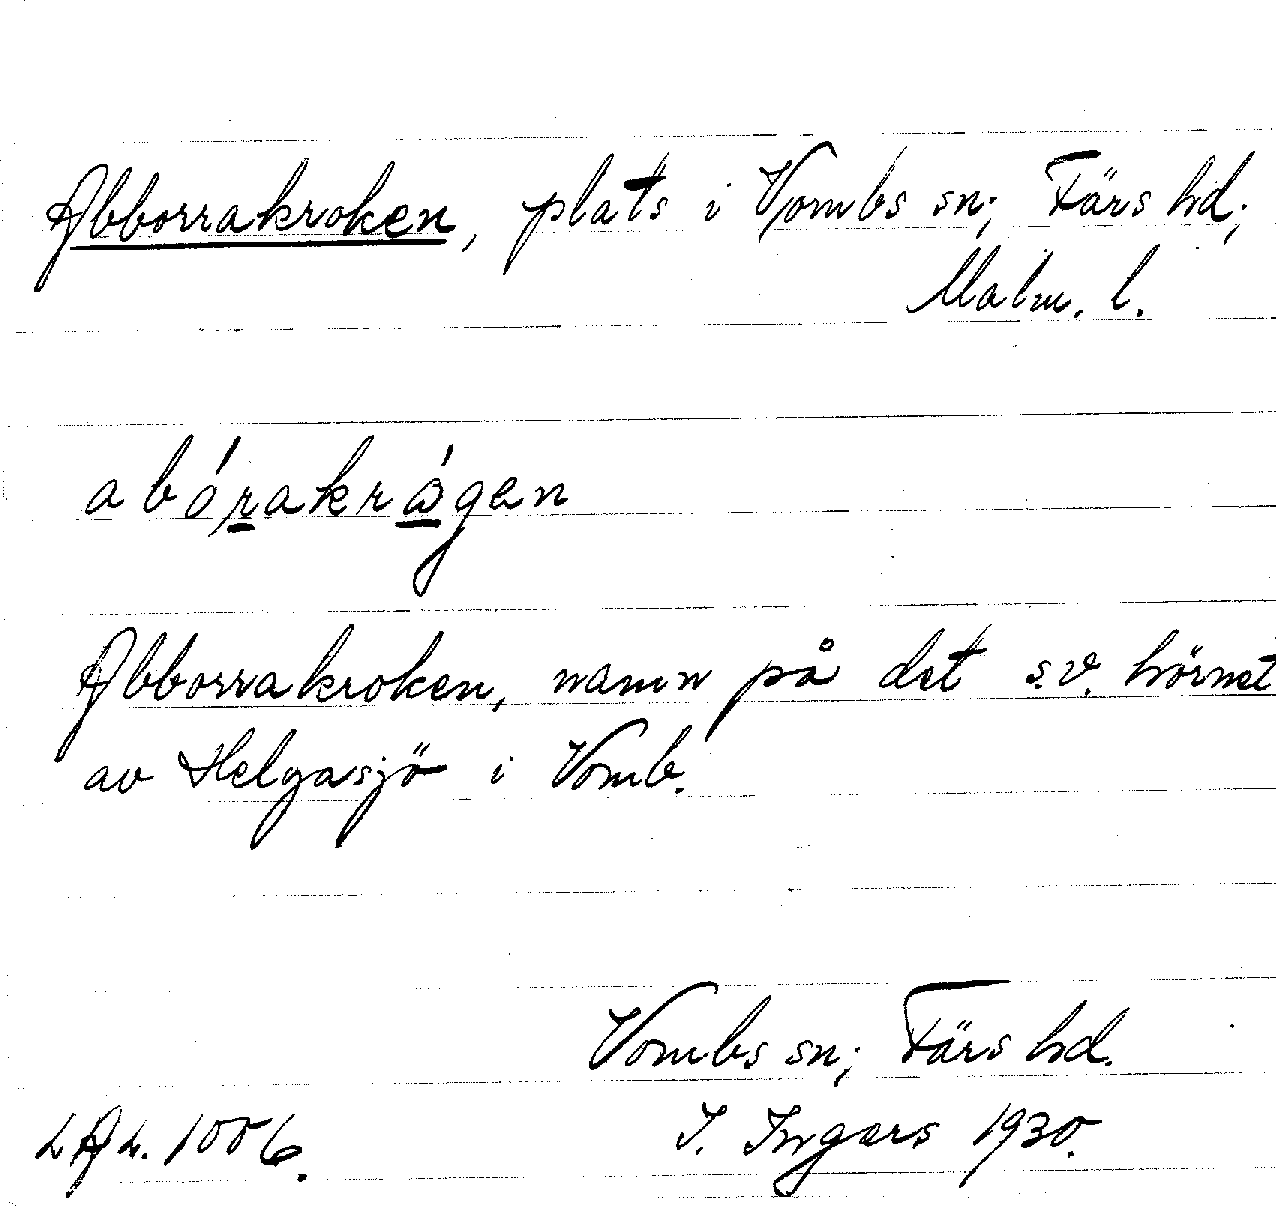 Abborrakroken, plats i Vombs sn; Färs hd;
Malm. l.
abórakrǻgen
Abborrakroken, namn på det s.v. hörnet
av Helgasjö i Vomb.
Vombs sn; Färs hd.
I. Ingers 1930.
LAL. 1006.